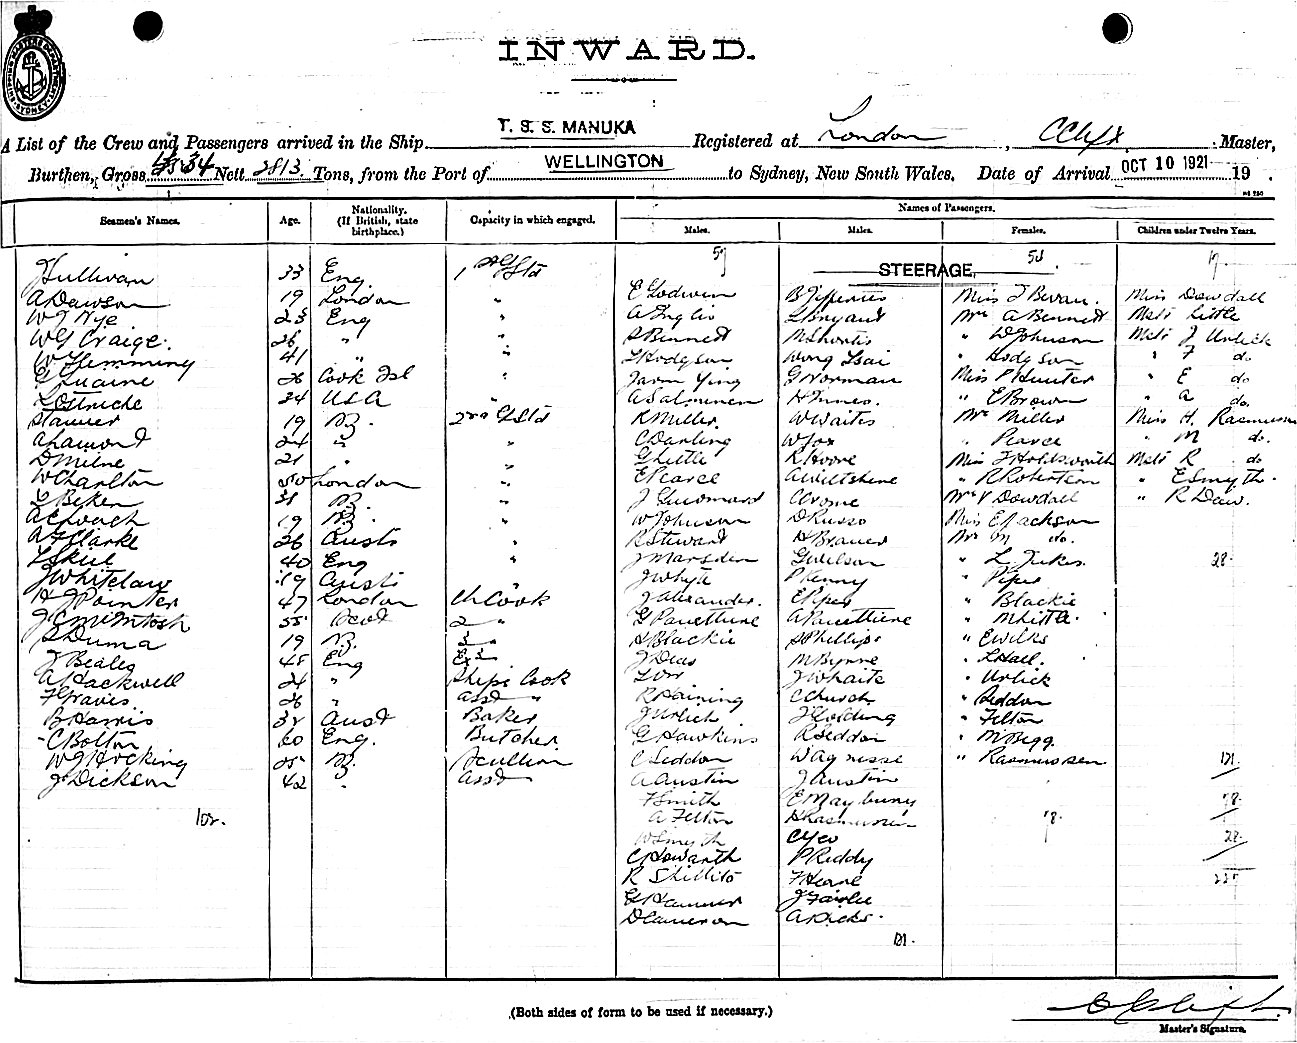 INWARD.
A List of the Crew and Passengers arrived in the Ship T. S. S. MANUKA Registered at London, Master,
Burthen, Gross 4534 Nett 2813 Tons, from the Port of WELLINGTON to Sydney, New South Wales, Date of Arrival OCT 10 1921 19 .
Seamen's Names. Age. Nationality. (If British, state birthplace.) Capacity in which engaged. Names of Passengers.
Males. Males. Females. Children under Twelve Years.
57 STEERAGE. 17
J Sullivan 33 Eng. 1
E Godwin B Jefferies Miss J Bevan. Miss Dowdall
A Dawson 19 London "
A Inglis L Bryant Mrs A Bennett Mstr Little
W J Nye 23 Eng "
S Bennett M Shortis " W Johnson Mstr J Urlich
W G Craige. 26 " "
T Hodgson Wong Tsai " Hodgson " F do
W Flemming 41 " "
Young G Norman Miss P Hunter " E do
26 Cook Isl "
A Salminen H Innes. " E Brown " A do.
L Ostriche 34 USA
R Miller. W Waites Mrs Miller Miss H. Rasmussen
19 2nd
C Darling W Fox " Pearce " M do.
A Lamont 24 " "
G Little R Hoore Miss F Holdsworth Mstr R do
D Milne 21 " "
E Pearce A Wiltshire " R Robertson " E Smyth.
W Charlton 50 London "
J Guiomard C Crome Mrs V Dowdall " R Daw.
31 "
W Johnson D Russo Miss E Jackson
19 "
R Stewart H Brauer Mrs M do.
A F Clarke 26 Austr "
J Marsden G Wilson " L Jukes. 28
40 Eng "
J Whyte P Kenny " Piper
J Whitelaw 19 Austr "
J Alexander. E Piper " Blackie
H J Pointer 47 London Ch Cook
G Panettiere A Panettiere " M Little.
J C McIntosh 55 Scot 2 "
H Blackie S Phillips " E Wilks
S Duma 19 3 "
J Dias M Byrne " L Hall.
J Beales 45 Eng
L Orr J Whaite " Urlich
A Hackwell 24 " Ships Cook
R Haining C Church " Seddon
F Travis. 26 " Asst "
J Urlich J Golding " Felton
B Harris 32 Aust Baker
G Hawkins R Seddon " M Begg.
C Bolton 60 Eng. Butcher
C Seddon W Agnesse " Rasmussen 121
W J Hocking Scullion
A Austin J Austin
J Dickson 42 " Asst
F Smith E Maybury 78
102. A Felton H Rasmussen 78.
W Smyth C Yeo 28
C Howarth P Reddy
R Shillito F Hearne
G Hammer J Fairlie
D Cameron A Dicks.
121.
(Both sides of form to be used if necessary.)
Master's Signature.